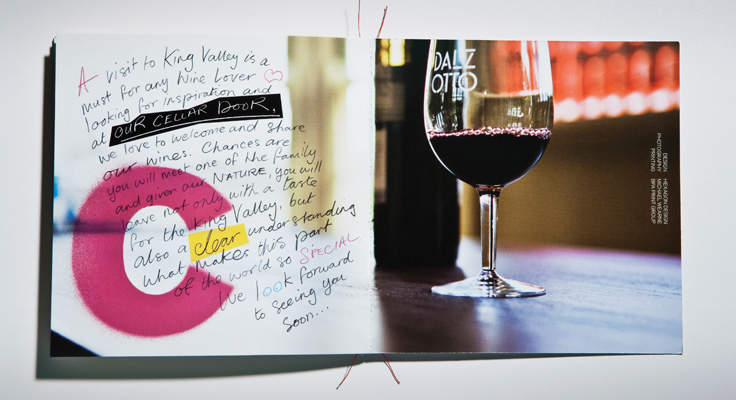 A visit to King Valley is a
must for any Wine Lover
looking for inspiration and
at OUR CELLAR DOOR,
we love to welcome and share
our wines. Chances are
you will meet one of the family
and given our NATURE, you will
leave not only with a taste
for the King Valley, but
also a clear understanding
what makes this part
of the world so SPECIAL.
We look forward
to seeing you
soon...
DALZ
OTTO
DESIGN HEXAGON DESIGN
PHOTOGRAPHY MICHAEL WEARNE
PRINTING BPA PRINT GROUP